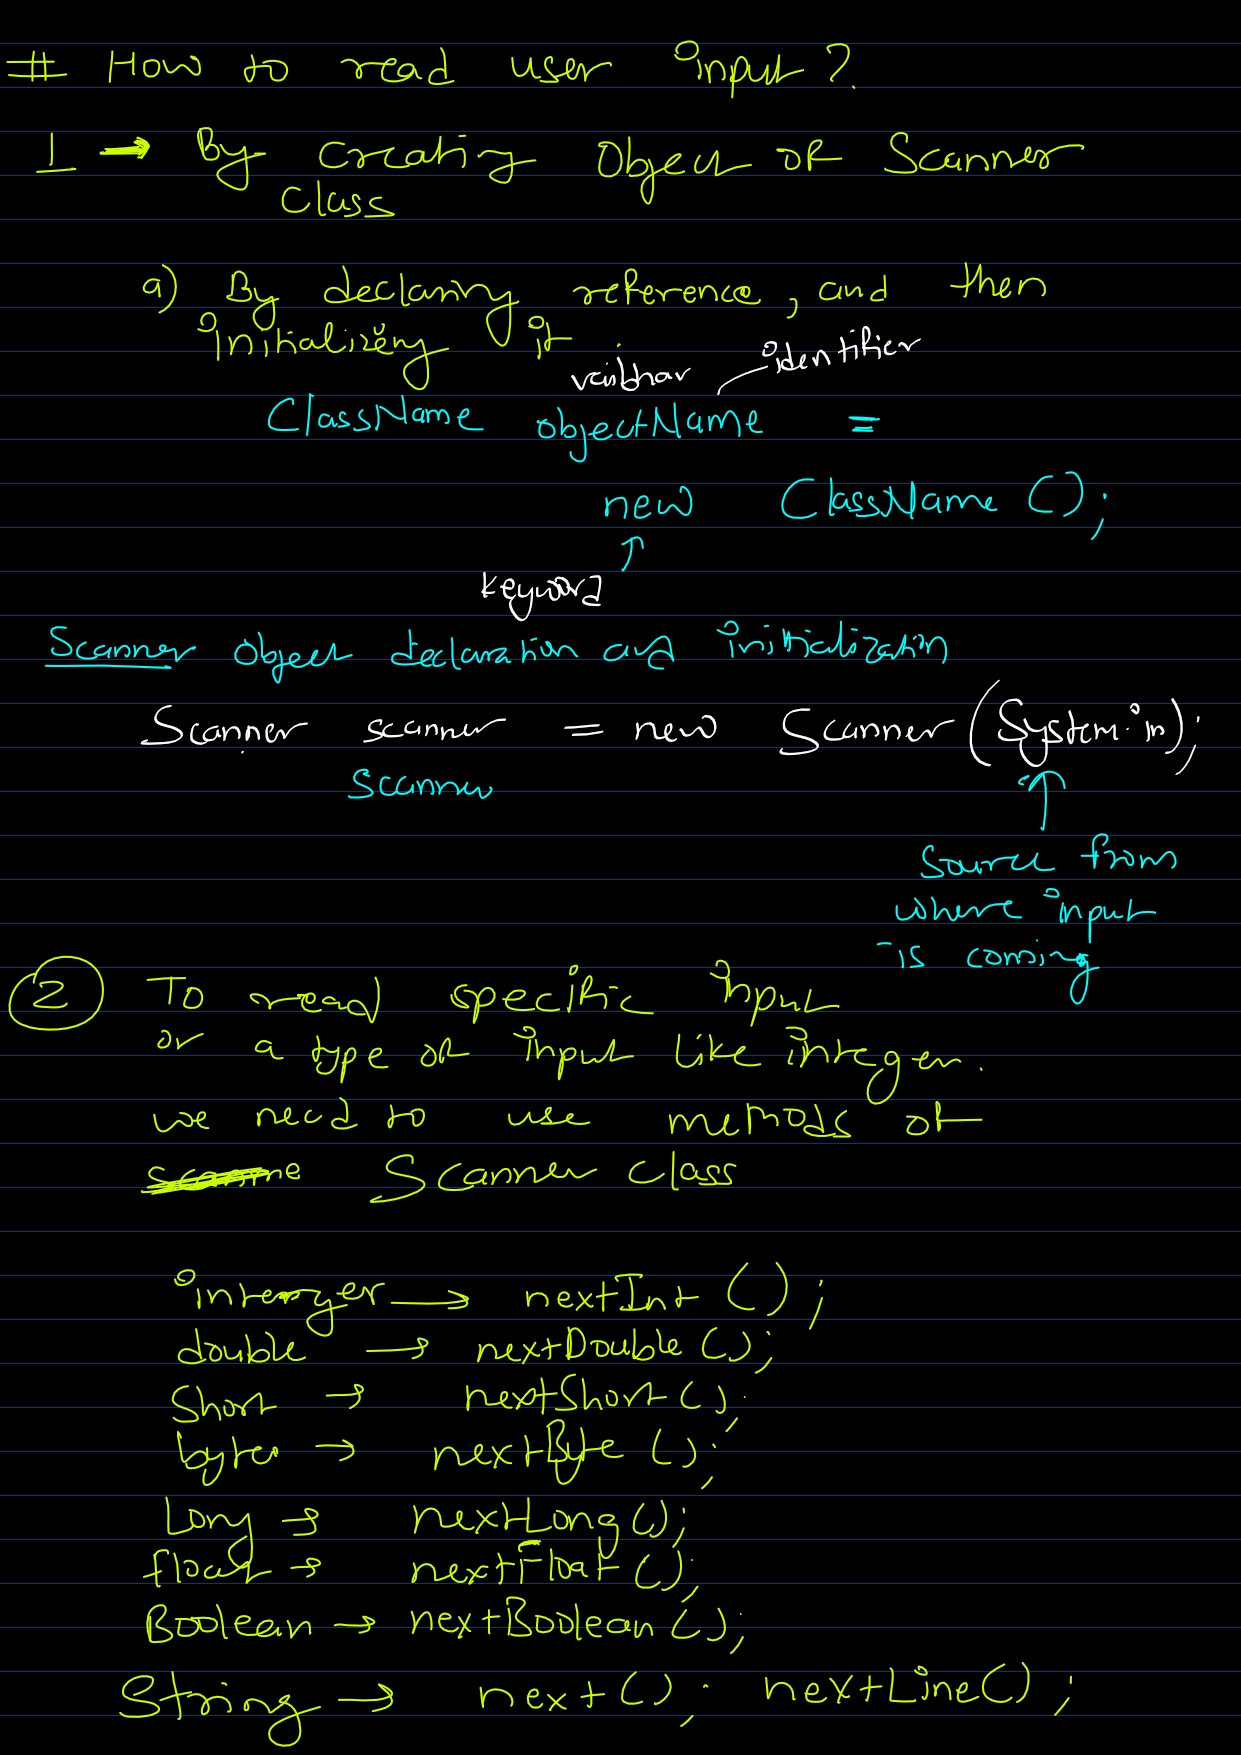 # How to read user input?
1 → By creating Object of Scanner
Class
a) By declaring reference, and then
initializing it.
vaibhav identifier
ClassName objectName =
new ClassName();
↑
keyword
Scanner Object declaration and initialization
Scanner scanner = new Scanner(System.in);
scanner
↑
Source from
where input
is coming
2 To read specific input
or a type of input like integer.
we need to use methods of
Scanner class
integer → nextInt();
double → nextDouble();
Short → nextShort();
byte → nextByte();
Long → nextLong();
float → nextFloat();
Boolean → nextBoolean();
String → next(); nextLine();